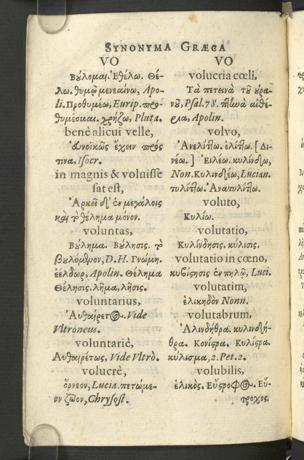 SYNONYMA GRÆCA
VO
Βούλομαι. Ἐθέλω. Θέ-
λω. θυμῷ μενεαίνω, Apo-
li. Προθυμέω, Eurip. προ-
θυμέομαι. χρῄζω, Pluta.
benè alicui velle,
εὐνοϊκῶς ἔχειν πρός
τινα, Isocr.
in magnis & voluisse
sat est,
Ἀρκεῖ δ' ἐν μεγάλοις
καὶ τὸ θέλημα μόνον.
voluntas,
Βούλημα. Βούλησις. τὸ
βουλόμενον, D. H. Γνώμη.
ἐέλδωρ, Apolin. Θέλημα
Θέλησις. λῆμα, λῆσις.
voluntarius,
Αὐθαίρετος. Vide
Vltroneus.
voluntariè,
Αὐθαιρέτως, Vide Vltrò.
volucrè,
ὄρνεον, Lucia. πετώμε-
νον ζῶον, Chrysost.
VO
volucria cœli,
Τὰ πετεινὰ τοῦ οὐρα-
νοῦ, Psal. 78. πτηνὰ αἰθέ-
ρια, Apolin.
volvo,
Ἀνελίττω. ἑλίττω. [Δι-
νέω.] Εἰλέω. κυλινδέω,
Non. Κυλινδέω, Lucian.
τυλίττω. Ἀνατυλίττω.
voluto,
Κυλίω.
volutatio,
Κυλίνδησις. κύλισις.
volutatio in cœno,
ἐν πηλῷ, Luci.
volutatim,
ἑλικηδὸν Nonn.
volutabrum.
Ἀλινδήθρα. κυλινδή-
θρα. Κονίστρα. Κυλίστρα.
κύλισμα, 2. Pet. 2.
volubilis,
ἑλικός. Εὔστροφος. Εὔ-
τροχος.